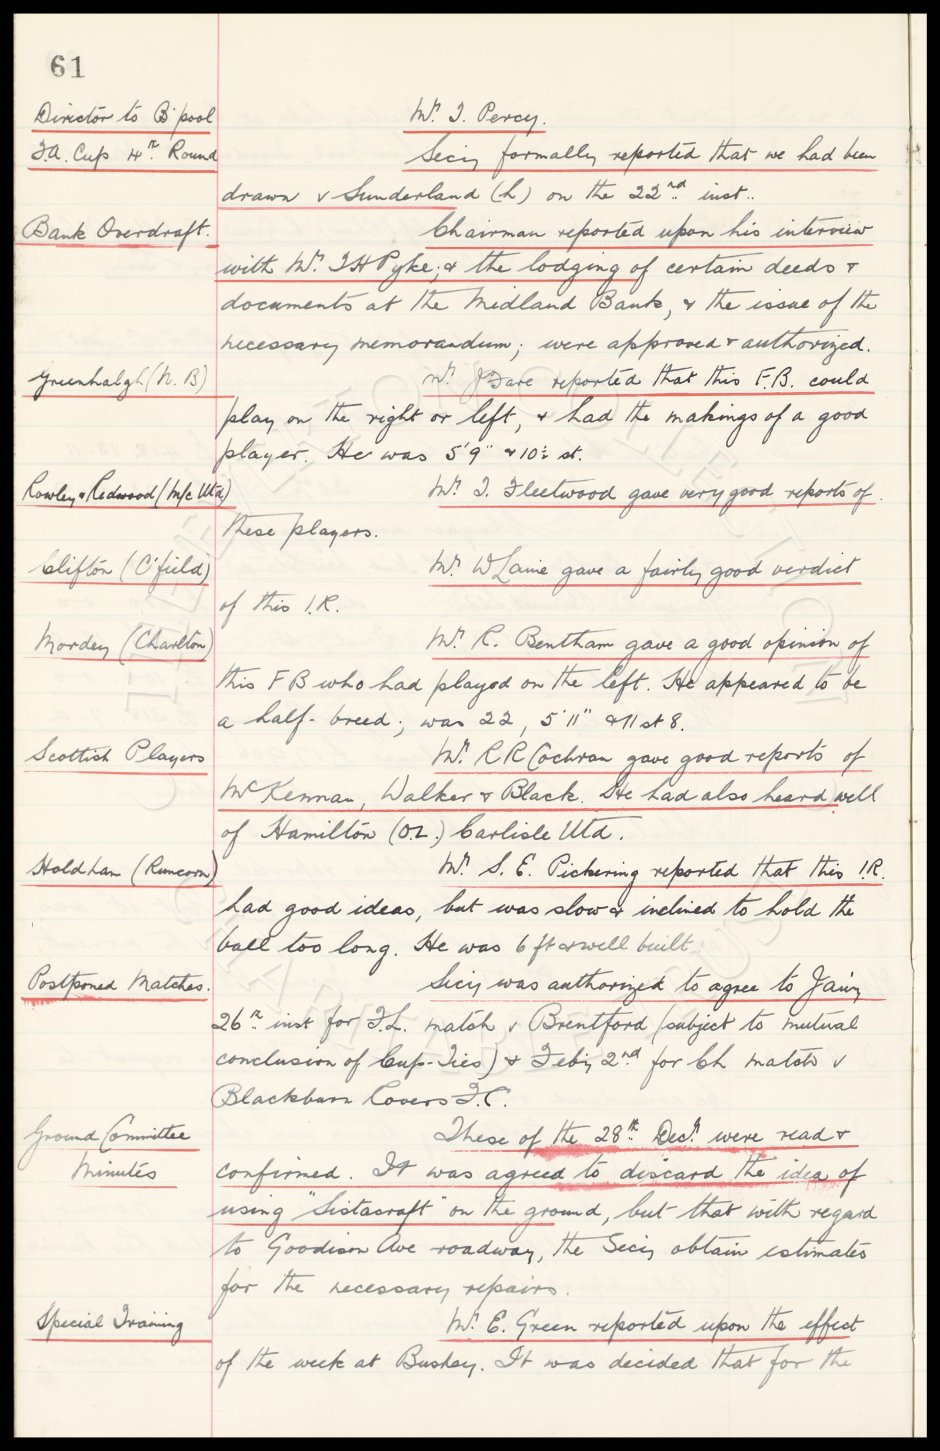 61
Director to B'pool Mr. T. Percy.
F.A. Cup 4th Round Secy formally reported that we had been
drawn v Sunderland (h) on the 22nd inst..
Bank Overdraft. Chairman reported upon his interview
with Mr. T H Pyke; & the lodging of certain deeds &
documents at the Midland Bank, & the issue of the
necessary memorandum; were approved & authorized.
Greenhalgh (N. B) Mr. J Fare reported that this F.B. could
play on the right or left, & had the makings of a good
player. He was 5'9" & 10½ st.
Rowley & Redwood (M/c Utd) Mr. T. Fleetwood gave very good reports of
these players.
Clifton (C'field) Mr. W Laine gave a fairly good verdict
of this I.R.
Mordey (Charlton) Mr. R. Bentham gave a good opinion of
this F B who had played on the left. He appeared to be
a half-breed; was 22, 5'11" & 11 st 8.
Scottish Players Mr. R R Cochran gave good reports of
McKennan, Walker & Black. He had also heard well
of Hamilton (O.L.) Carlisle Utd.
Holdham (Runcorn) Mr. S. E. Pickering reported that this I.R.
had good ideas, but was slow & inclined to hold the
ball too long. He was 6 ft & well built.
Postponed Matches. Secy was authorized to agree to Jany
26th inst for F.L. match v Brentford (subject to mutual
conclusion of Cup-Ties) & Feby 2nd for Ch match v
Blackburn Rovers F.C.
Ground Committee These of the 28th Decr. were read &
Minutes confirmed. It was agreed to discard the idea of
using "Sistacraft" on the ground, but that with regard
to Goodison Ave roadway, the Secy obtain estimates
for the necessary repairs.
Special Training Mr. E. Green reported upon the effect
of the week at Bushey. It was decided that for the